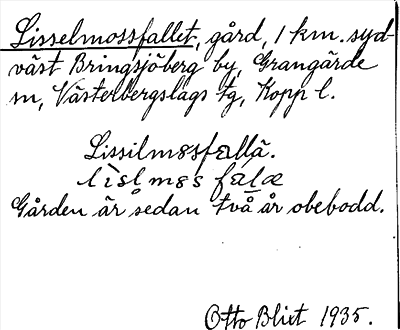 Lisselmossfallet, gård, 1 km. syd-
väst Bringsjöberg by, Grangärde
sn, Västerbergslags tg, Kopp l.
Lissilmɞsfallä.
Gården är sedan två år obebodd.
Otto Blixt 1935.